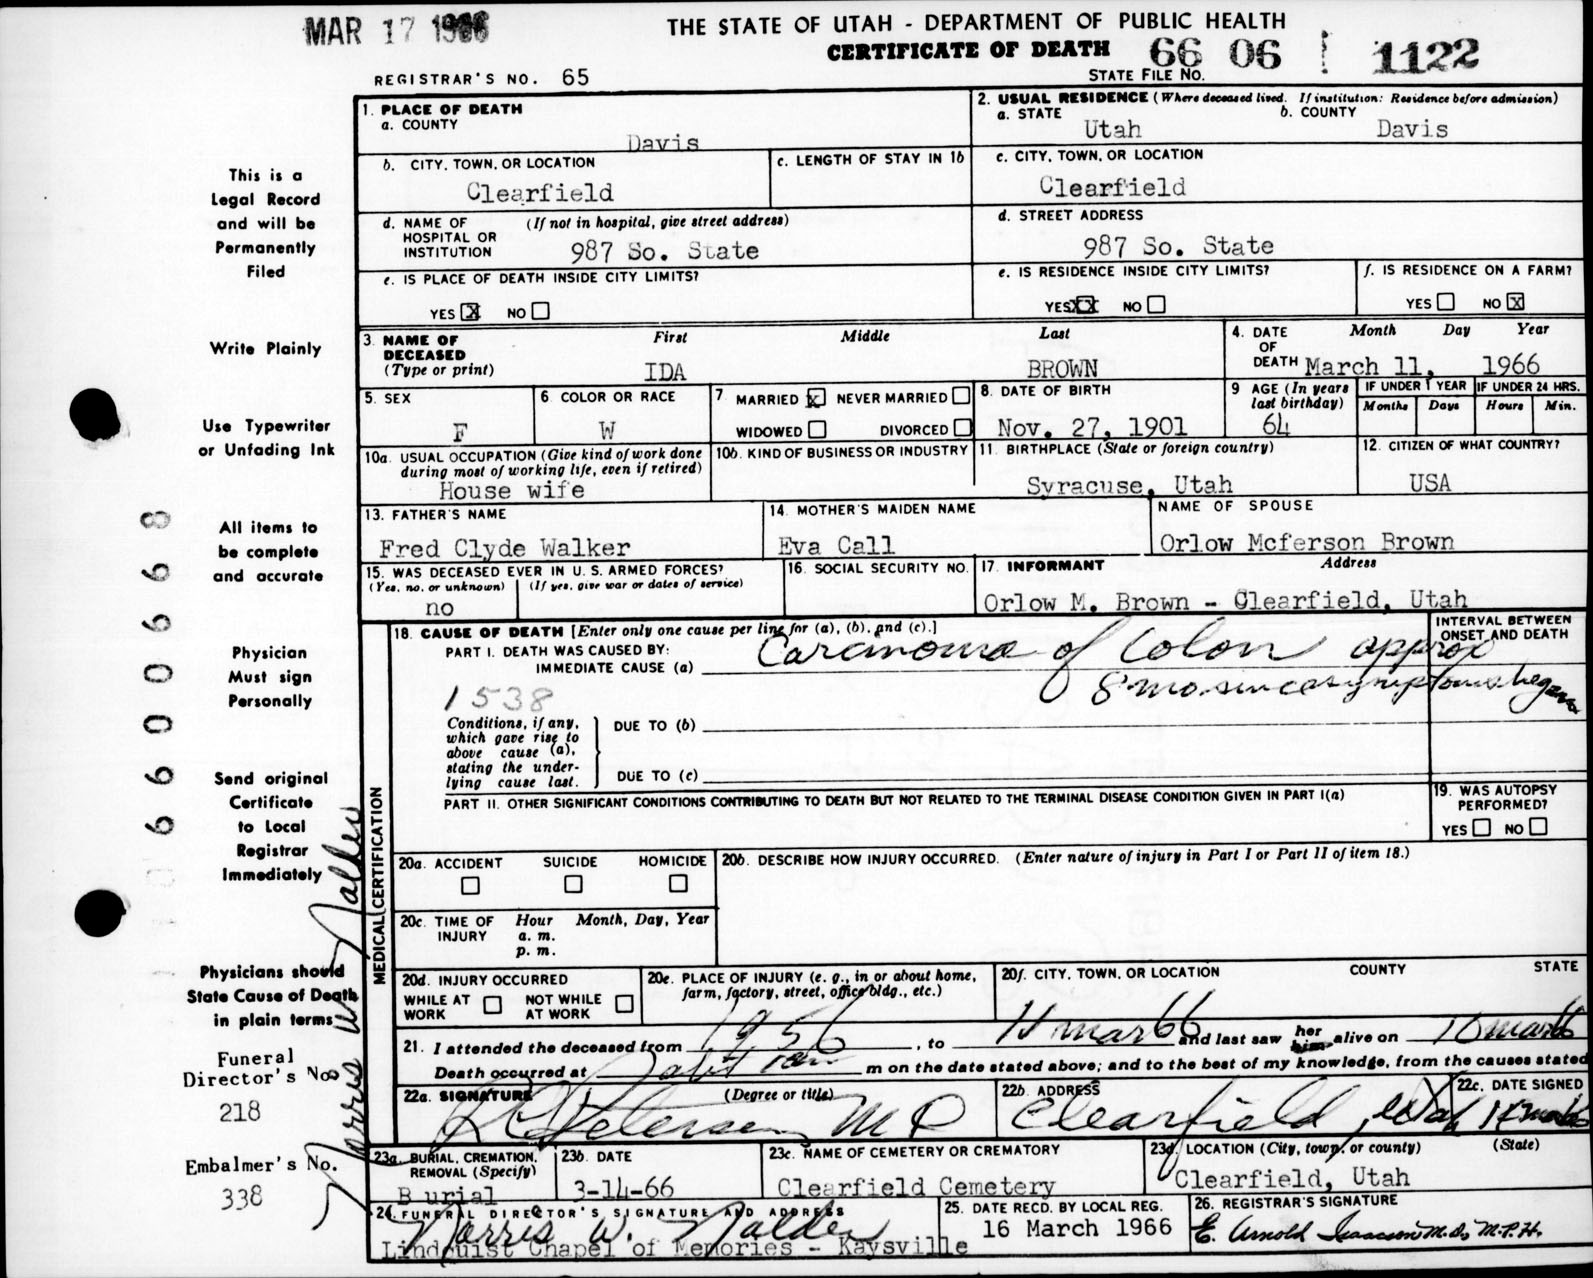 MAR 17 1966
THE STATE OF UTAH - DEPARTMENT OF PUBLIC HEALTH
CERTIFICATE OF DEATH 66 06 1122
REGISTRAR'S NO. 65
STATE FILE NO.
1. PLACE OF DEATH
a. COUNTY
Davis
2. USUAL RESIDENCE (Where deceased lived. If institution: Residence before admission)
a. STATE
Utah
b. COUNTY
Davis
b. CITY, TOWN, OR LOCATION
Clearfield
c. LENGTH OF STAY IN 1b
c. CITY, TOWN, OR LOCATION
Clearfield
d. NAME OF HOSPITAL OR INSTITUTION
(If not in hospital, give street address)
987 So. State
d. STREET ADDRESS
987 So. State
e. IS PLACE OF DEATH INSIDE CITY LIMITS?
YES X NO
e. IS RESIDENCE INSIDE CITY LIMITS?
YES XX NO
f. IS RESIDENCE ON A FARM?
YES NO X
3. NAME OF DECEASED (Type or print)
First Middle Last
IDA BROWN
4. DATE OF DEATH
Month Day Year
March 11, 1966
5. SEX
F
6. COLOR OR RACE
W
7. MARRIED X NEVER MARRIED
WIDOWED DIVORCED
8. DATE OF BIRTH
Nov. 27, 1901
9 AGE (In years last birthday)
64
IF UNDER 1 YEAR
Months Days
IF UNDER 24 HRS.
Hours Min.
10a. USUAL OCCUPATION (Give kind of work done during most of working life, even if retired)
House wife
10b. KIND OF BUSINESS OR INDUSTRY
11. BIRTHPLACE (State or foreign country)
Syracuse, Utah
12. CITIZEN OF WHAT COUNTRY?
USA
13. FATHER'S NAME
Fred Clyde Walker
14. MOTHER'S MAIDEN NAME
Eva Call
NAME OF SPOUSE
Orlow Mcferson Brown
15. WAS DECEASED EVER IN U. S. ARMED FORCES?
(Yes, no, or unknown) (If yes, give war or dates of service)
no
16. SOCIAL SECURITY NO.
17. INFORMANT Address
Orlow M. Brown - Clearfield, Utah
18. CAUSE OF DEATH [Enter only one cause per line for (a), (b), and (c).]
PART I. DEATH WAS CAUSED BY:
IMMEDIATE CAUSE (a) Carcinoma of Colon approx
8 mo since symptoms began
INTERVAL BETWEEN ONSET AND DEATH
1538
Conditions, if any, which gave rise to above cause (a), stating the underlying cause last.
DUE TO (b)
DUE TO (c)
PART II. OTHER SIGNIFICANT CONDITIONS CONTRIBUTING TO DEATH BUT NOT RELATED TO THE TERMINAL DISEASE CONDITION GIVEN IN PART I(a)
19. WAS AUTOPSY PERFORMED?
YES NO
MEDICAL CERTIFICATION
20a. ACCIDENT SUICIDE HOMICIDE
20b. DESCRIBE HOW INJURY OCCURRED. (Enter nature of injury in Part I or Part II of item 18.)
20c. TIME OF INJURY
Hour Month, Day, Year
a. m.
p. m.
20d. INJURY OCCURRED
WHILE AT WORK NOT WHILE AT WORK
20e. PLACE OF INJURY (e. g., in or about home, farm, factory, street, office bldg., etc.)
20f. CITY, TOWN, OR LOCATION COUNTY STATE
21. I attended the deceased from 1956, to 11 Mar 66 and last saw her him alive on 10 Mar 66
Death occurred at m on the date stated above; and to the best of my knowledge, from the causes stated
22a. SIGNATURE (Degree or title)
Petersen MD
22b. ADDRESS
Clearfield, Utah
22c. DATE SIGNED
23a. BURIAL, CREMATION, REMOVAL (Specify)
Burial
23b. DATE
3-14-66
23c. NAME OF CEMETERY OR CREMATORY
Clearfield Cemetery
23d. LOCATION (City, town, or county) (State)
Clearfield, Utah
24. FUNERAL DIRECTOR'S SIGNATURE AND ADDRESS
Norris W. Nalder
Lindquist Chapel of Memories - Kaysville
25. DATE RECD. BY LOCAL REG.
16 March 1966
26. REGISTRAR'S SIGNATURE
E. Arnold Isaacson M.D., M.P.H.
This is a
Legal Record
and will be
Permanently
Filed
Write Plainly
Use Typewriter
or Unfading Ink
All items to
be complete
and accurate
Physician
Must sign
Personally
Send original
Certificate
to Local
Registrar
Immediately
Physicians should
State Cause of Death
in plain terms
Funeral
Director's No
218
Embalmer's No.
338
Norris W Nalder